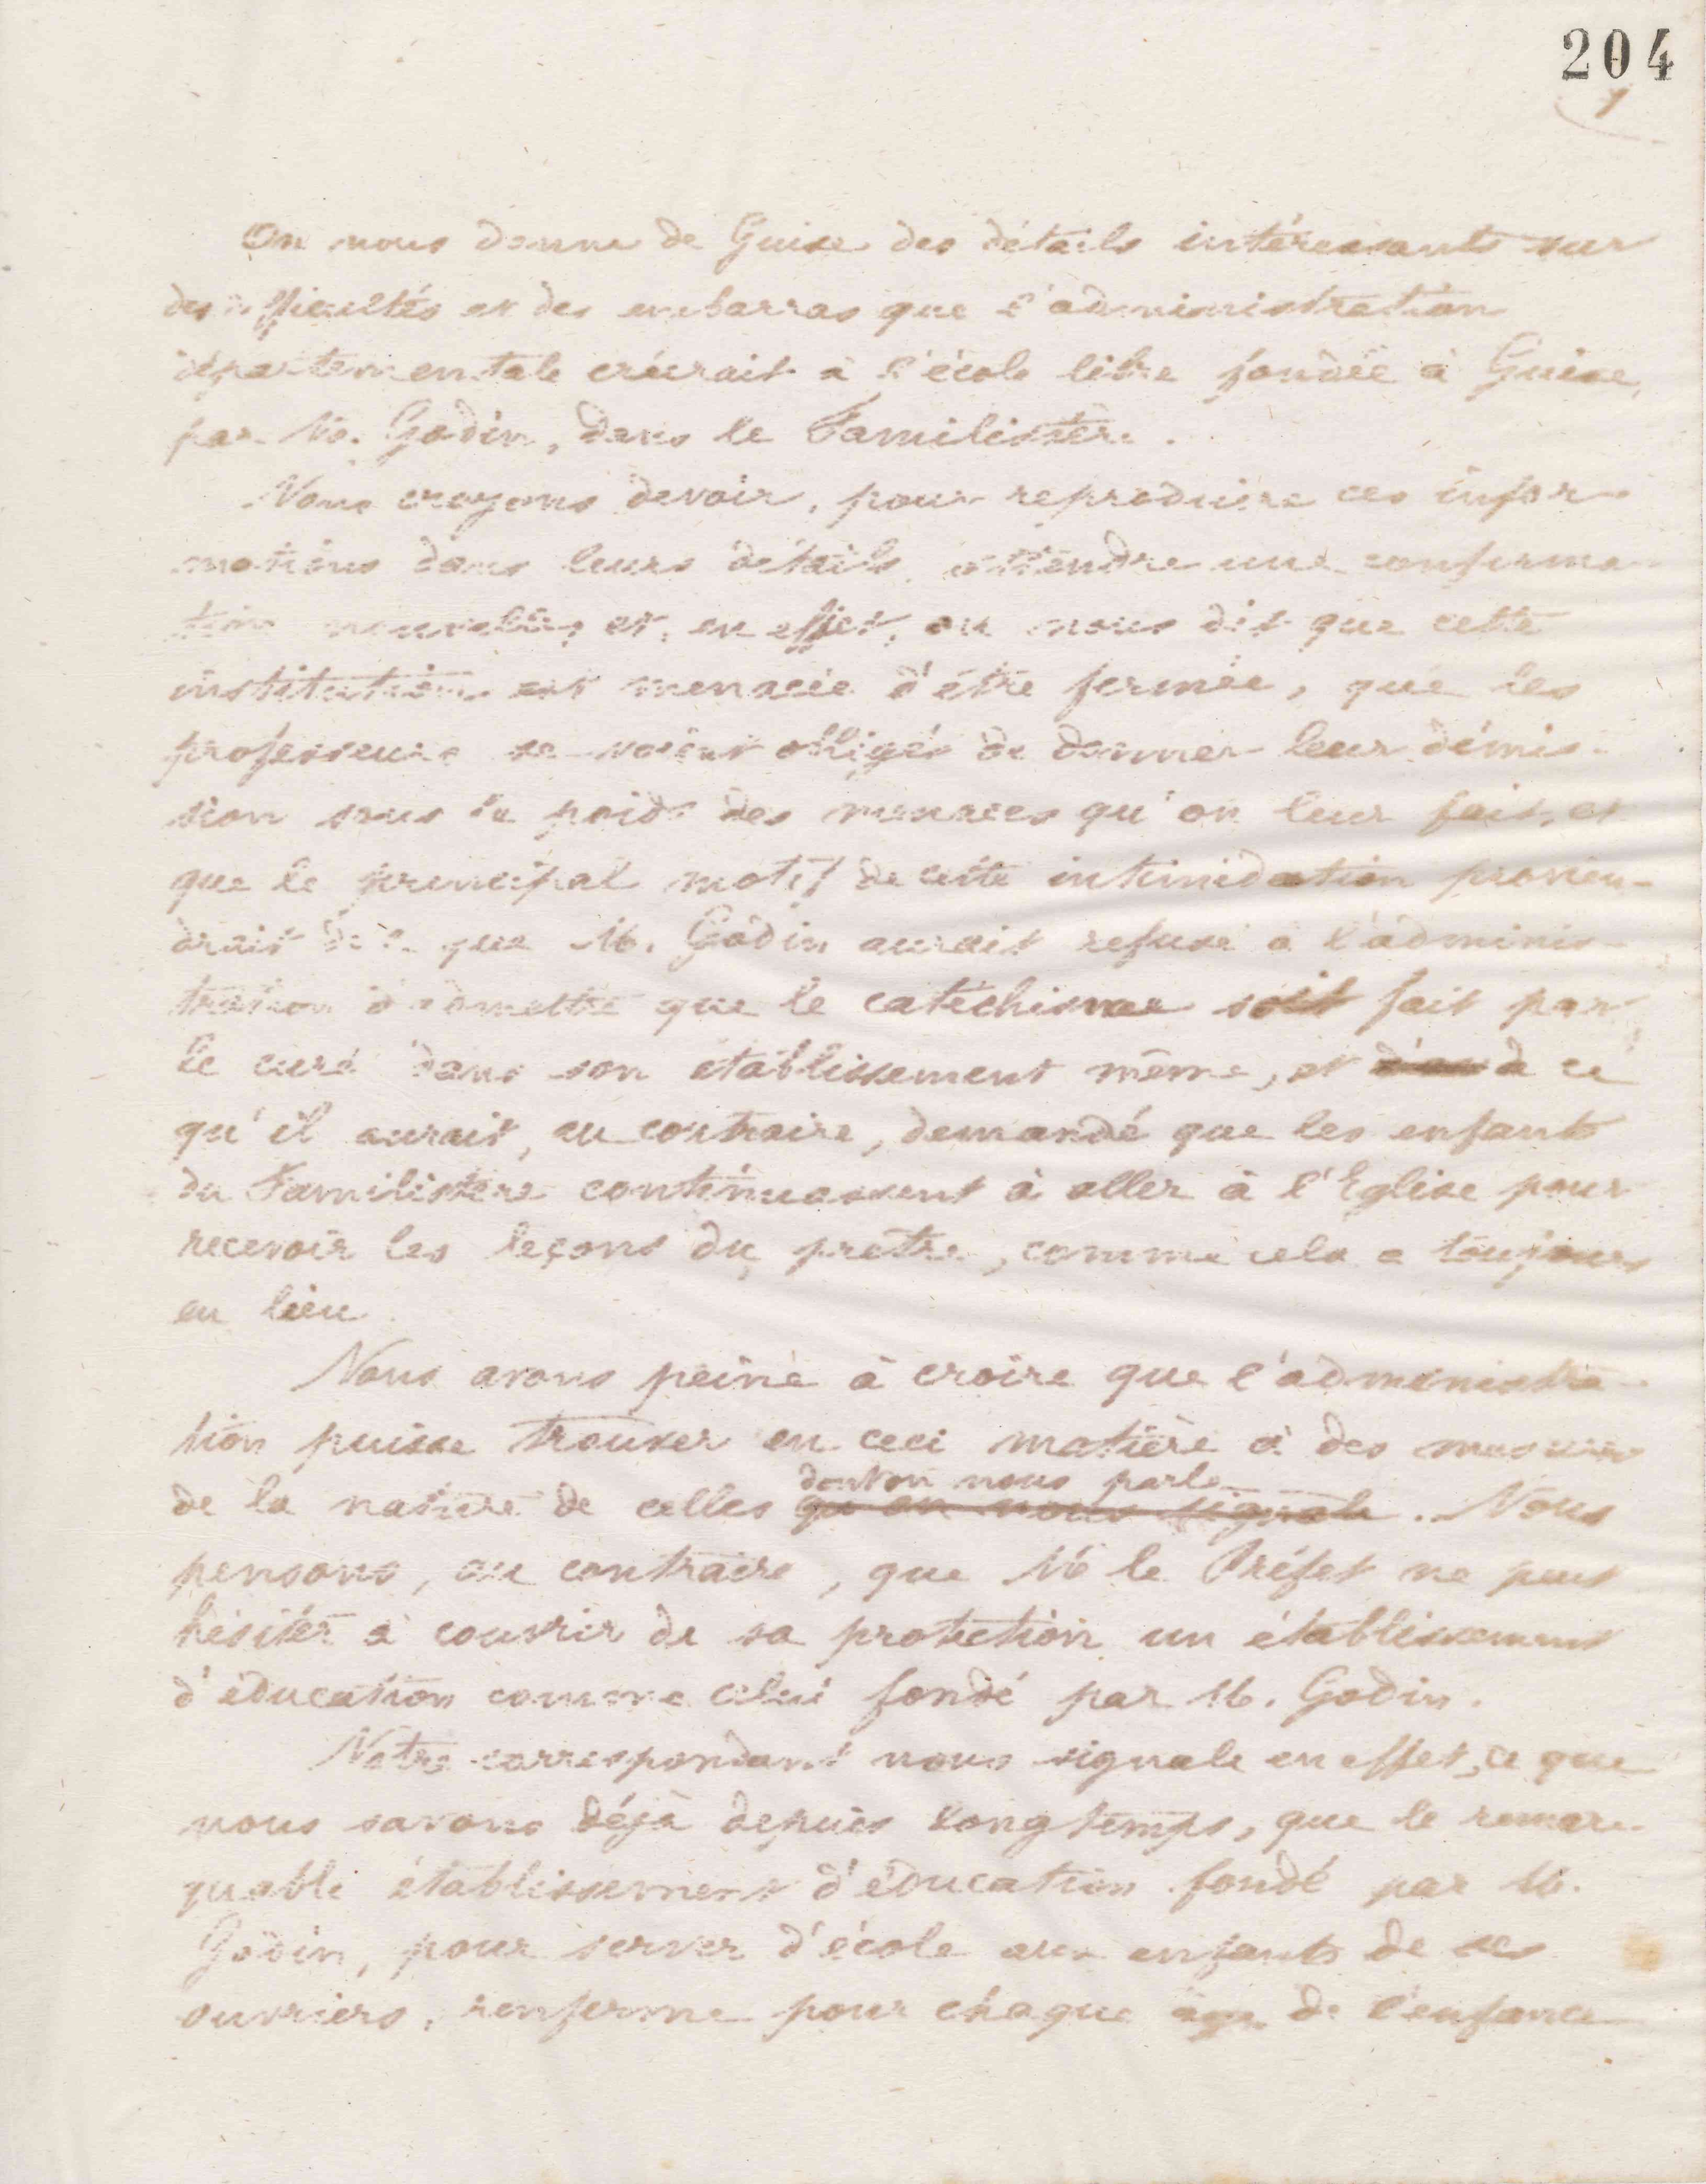 204
1
On nous donne de Guise des détails intéressants sur
des difficultés et des embarras que l'administration
départementale créerait à l'école libre fondée à Guise,
par M. Godin, dans le Familistère.
Nous croyons devoir, pour reproduire ces infor-
mations dans leurs détails, attendre une confirma-
tion nouvelle, et, en effet, on nous dit que cette
institution est menacée d'être fermée, que les
professeurs se voient obligés de donner leur démis-
sion sous le poids des menaces qu'on leur fait, et
que le principal motif de cette intimidation provien-
drait de ce que M. Godin aurait refusé à l'adminis-
tration d'admettre que le catéchisme soit fait par
le curé dans son établissement même, et à ce
qu'il aurait, au contraire, demandé que les enfants
du Familistère continuassent à aller à l'Eglise pour
recevoir les leçons du prêtre, comme cela a toujours
eu lieu.
Nous avons peine à croire que l'administra-
tion puisse trouver en ceci matière à des mesures
dont on nous parle
de la nature de celles qu'on nous signale. Nous
pensons, au contraire, que M le Préfet ne peut
hésiter à couvrir de sa protection un établissement
d'éducation comme celui fondé par M. Godin.
Notre correspondant nous signale en effet, ce que
nous savons déjà depuis longtemps, que le remar-
quable établissement d'éducation fondé par M.
Godin, pour servir d'école aux enfants de ses
ouvriers, renferme pour chaque âge de l'enfance